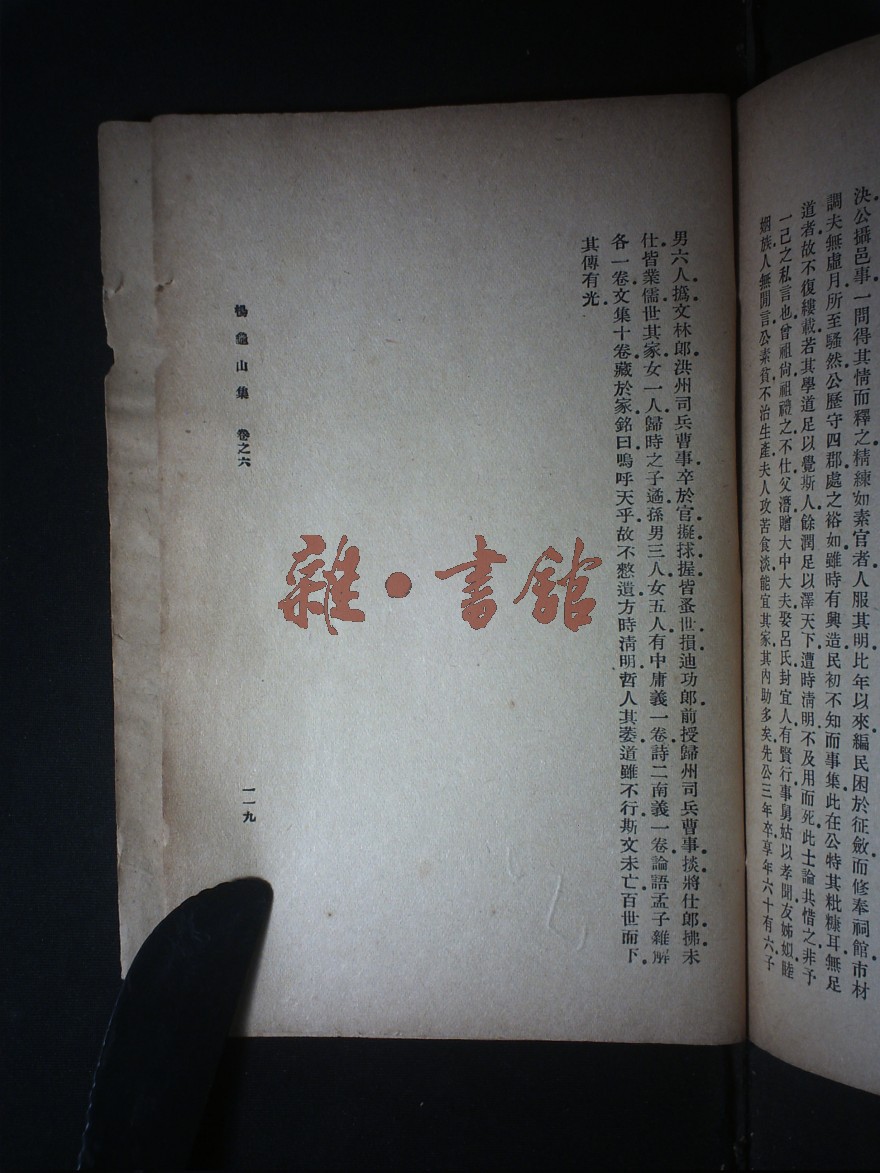 決公攝邑事一問得其情而釋之精練如素官者人服其明比年以來編民困於征斂而修奉祠館市材
調夫無虛月所至騷然公歷守四郡處之裕如雖時有興造民初不知而事集此在公特其粃糠耳無足
道者故不復縷載若其學道足以覺斯人餘潤足以澤天下遭時清明不及用而死此士論共惜之非予
一己之私言也曾祖尙祖禮之不仕父潛贈大中大夫娶呂氏封宜人有賢行事舅姑以孝聞友娣姒睦
姻族人無閒言公素貧不治生產夫人攻苦食淡能宜其家其內助多矣先公三年卒享年六十有六子
男六人撝文林郎洪州司兵曹事卒於官擬捄握皆蚤世損迪功郎前授歸州司兵曹事掞將仕郎拂未
仕皆業儒世其家女一人歸時之子遹孫男三人女五人有中庸義一卷詩二南義一卷論語孟子雜解
各一卷文集十卷藏於家銘曰嗚呼天乎故不憗遺方時清明哲人其萎道雖不行斯文未亡百世而下
其傳有光
楊龜山集 卷之六
一一九
雜·書館